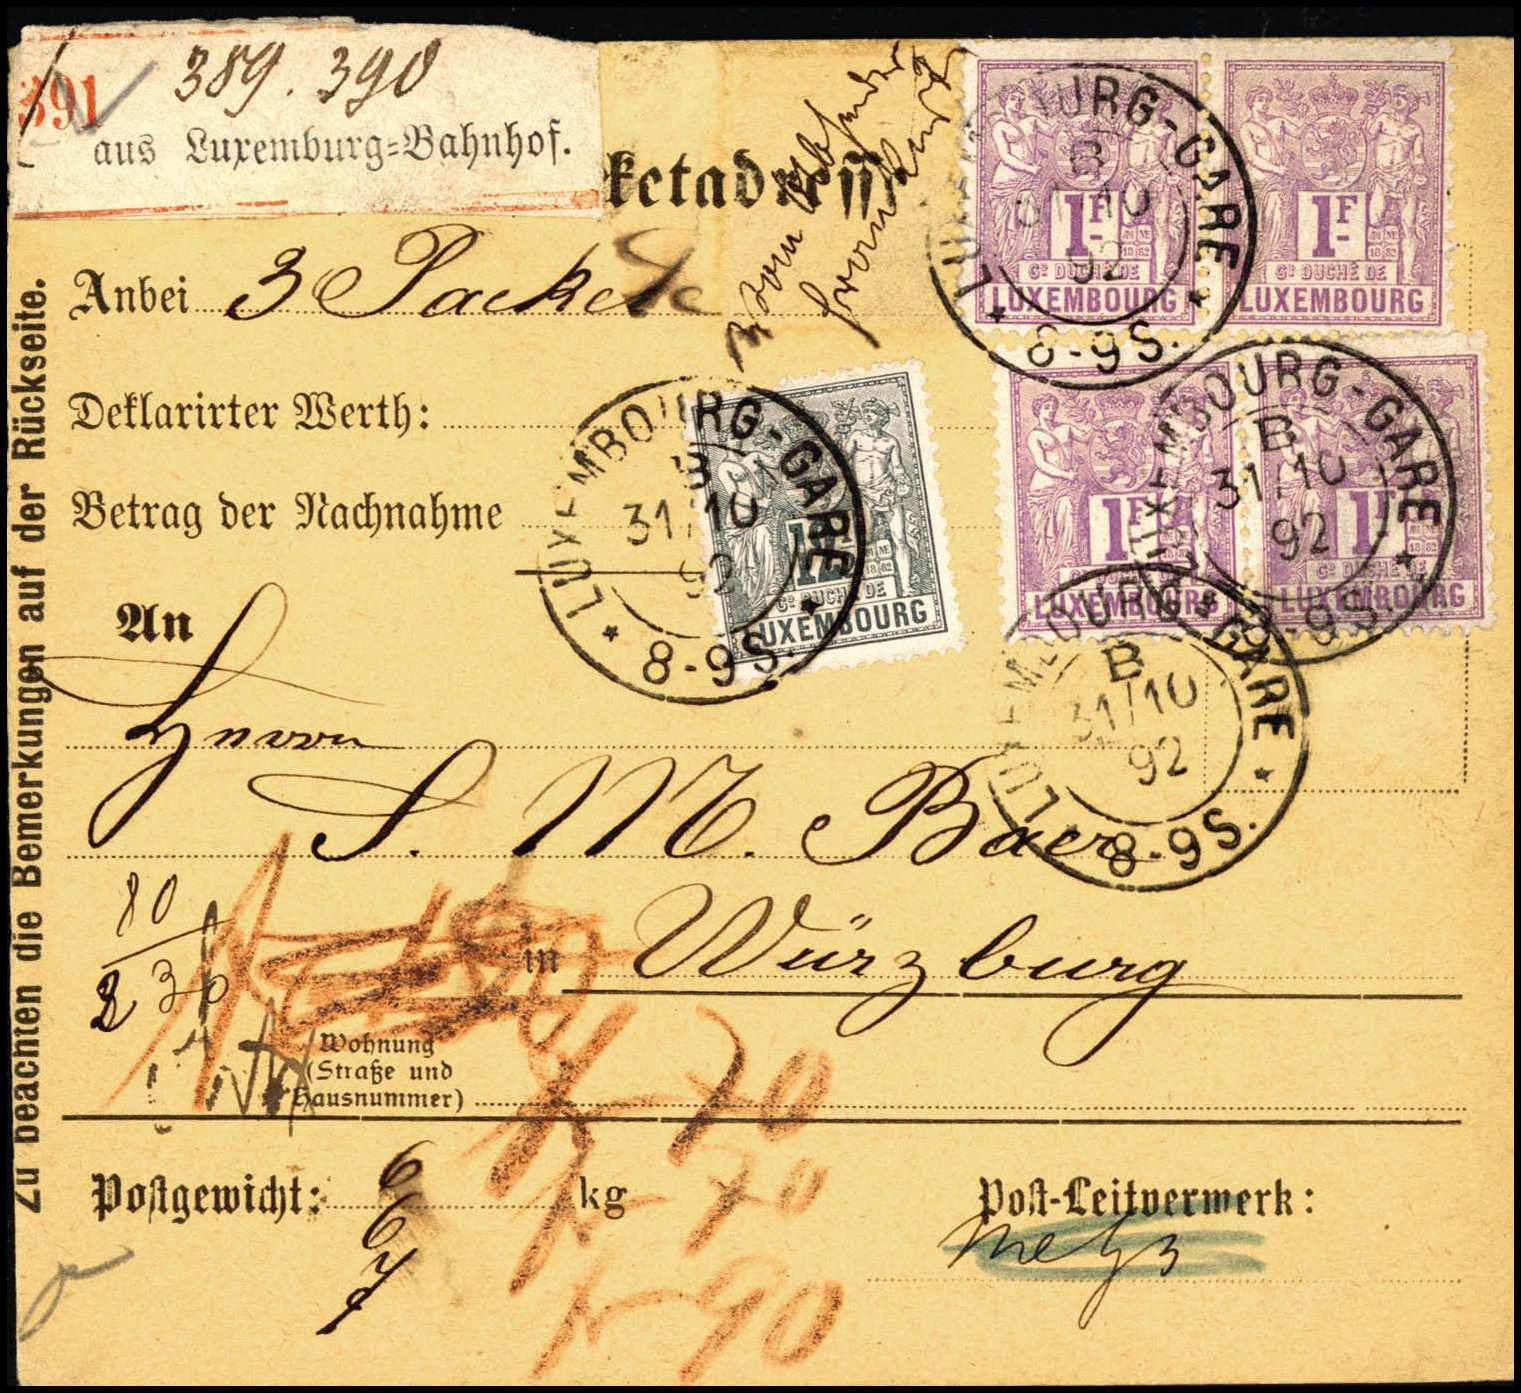 389. 390
391
aus Luxemburg-Bahnhof.
ketadresse
vom Absender
Anbei 3 Packete
Deklarirter Werth:
Betrag der Nachnahme
An
Herrn
S. M. Baer
in Würzburg
Wohnung
(Straße und
Hausnummer)
Postgewicht: 6 kg
6
7
80
2 30
70
70
90
Post-Leitvermerk:
Metz
Zu beachten die Bemerkungen auf der Rückseite.
1 F
GD DUCHÉ DE
LUXEMBOURG
1 F
GD DUCHÉ DE
LUXEMBOURG
1 F
GD DUCHÉ DE
LUXEMBOURG
1 F
GD DUCHÉ DE
LUXEMBOURG
GD DUCHÉ DE
LUXEMBOURG
LUXEMBOURG-GARE
B
31/10
92
* 8-9S. *
LUXEMBOURG-GARE
B
31/10
92
8-9S. *
LUXEMBOURG-GARE
B
31/10
92
* 8-9S. *
LUXEMBOURG-GARE
B
31/10
92
8-9S. *